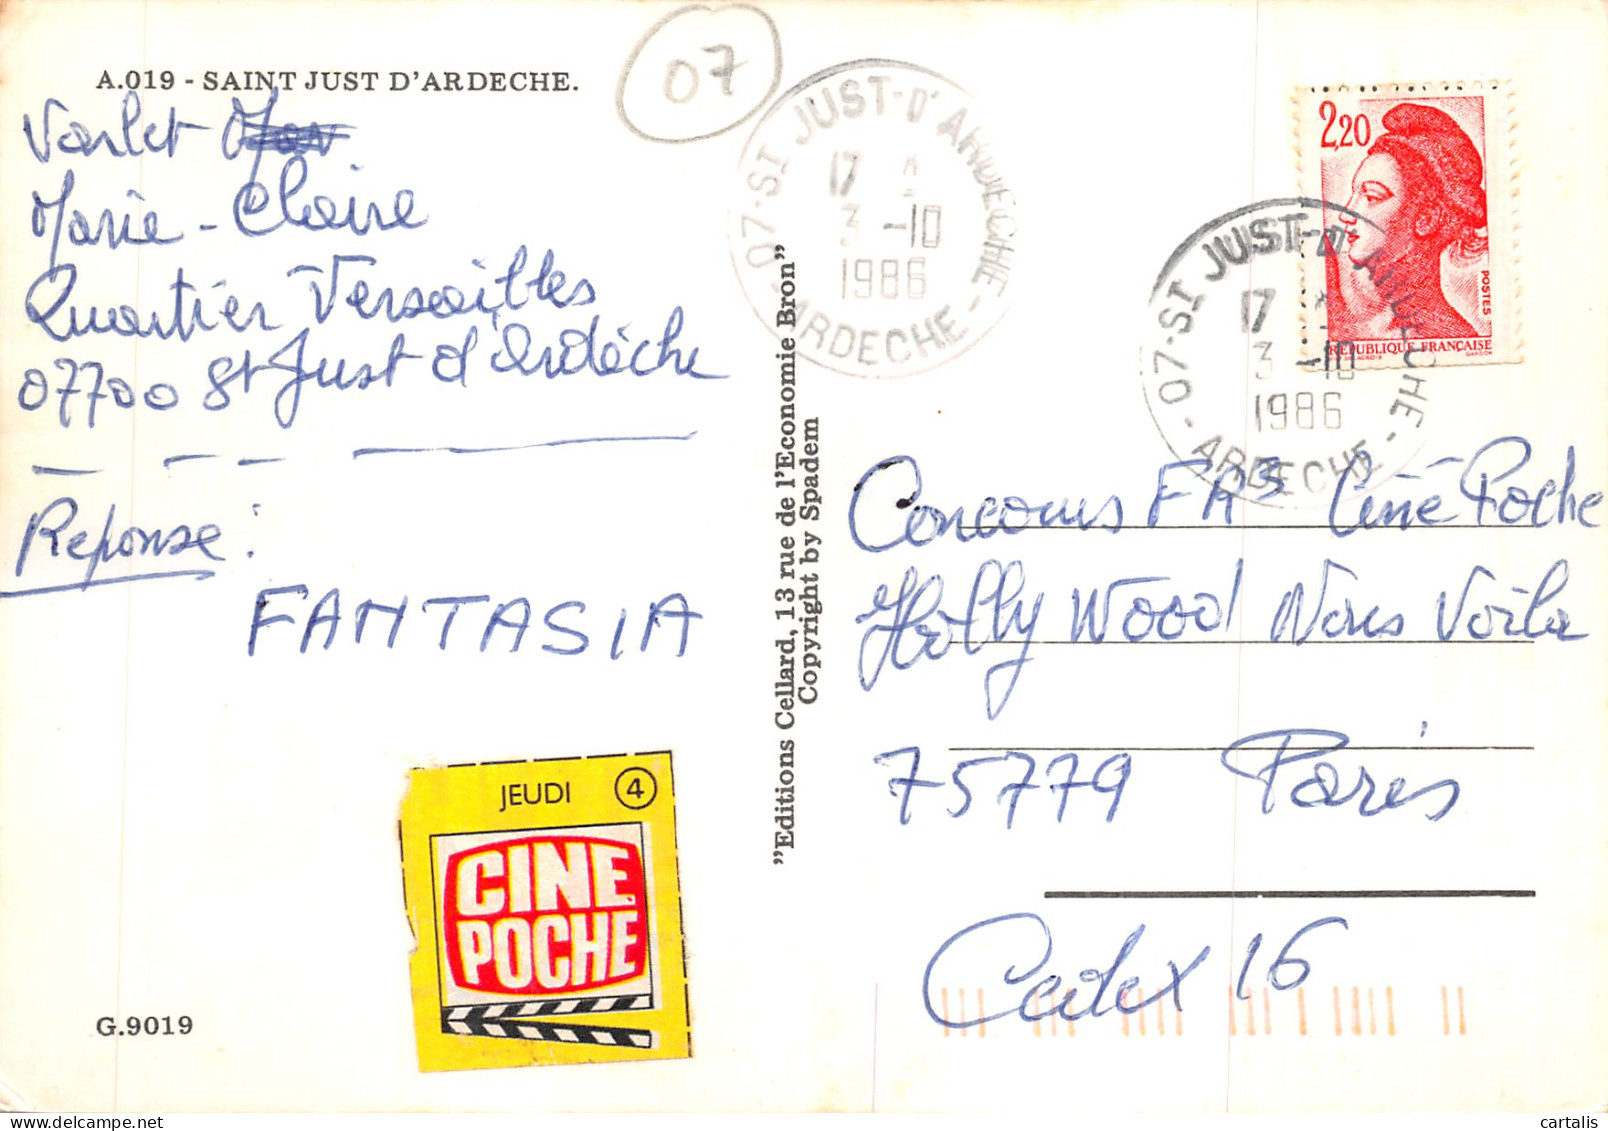 A.019 - SAINT JUST D'ARDECHE.
Varlet
Marie-Claire
Quartier Versailles
07700 St Just d'Ardèche
Reponse :
FANTASIA
JEUDI 4
CINE
POCHE
G.9019
"Editions Cellard, 13 rue de l'Economie Bron"
Copyright by Spadem
07
07-ST JUST-D'ARDECHE
17
3-10
1986
- ARDECHE -
2,20
POSTES
REPUBLIQUE FRANÇAISE
GANDON
07-ST JUST-D'ARDECHE
17
3-10
1986
- ARDECHE -
Concours FR3 Ciné Poche
Holly Wood Nous Voila
75779 Paris
Cedex 16
cartalis